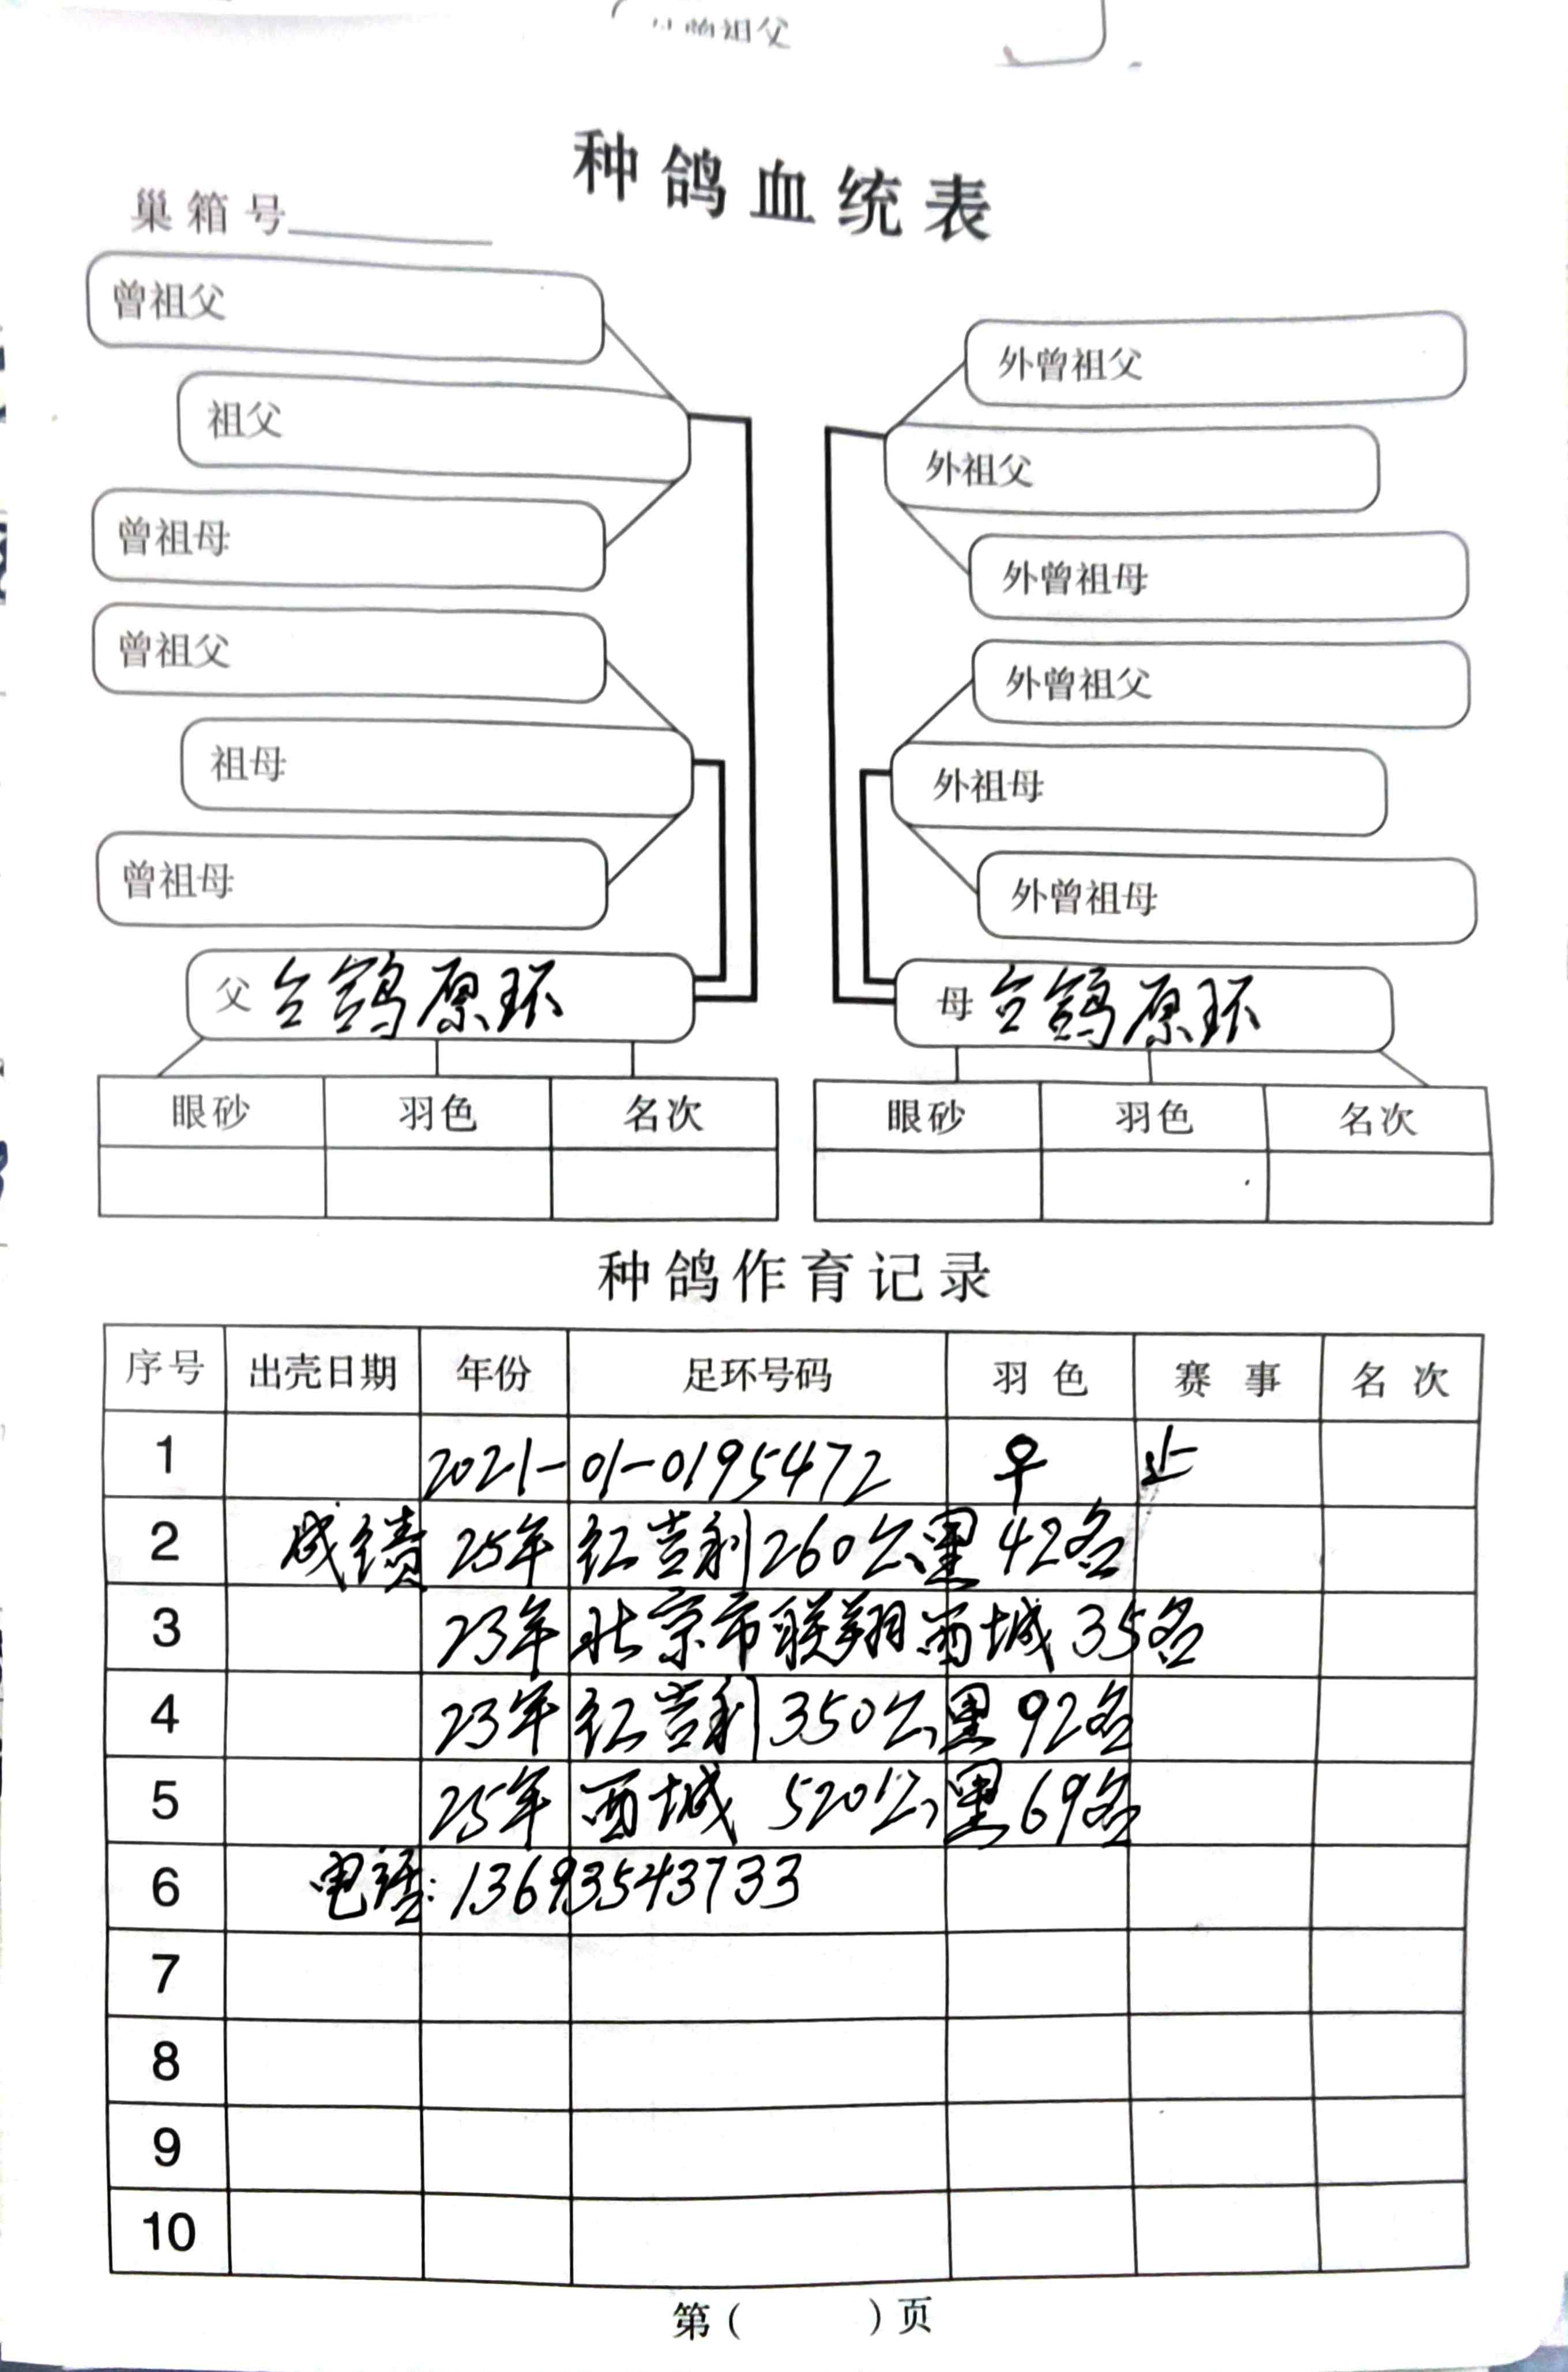 祖父
种鸽血统表
巢箱号
曾祖父
祖父
曾祖母
曾祖父
祖母
曾祖母
父 台鸽原环
眼砂 羽色 名次
外曾祖父
外祖父
外曾祖母
外曾祖父
外祖母
外曾祖母
母 台鸽原环
眼砂 羽色 名次
种鸽作育记录
序号 出壳日期 年份 足环号码 羽色 赛事 名次
1 2021-01-0195472 ♀
2 成绩 25年 红吉利260公里42名
3 23年 北京市联翔西城35名
4 23年 红吉利350公里92名
5 25年 西城 520公里69名
6 电话:13693543733
7
8
9
10
第( )页